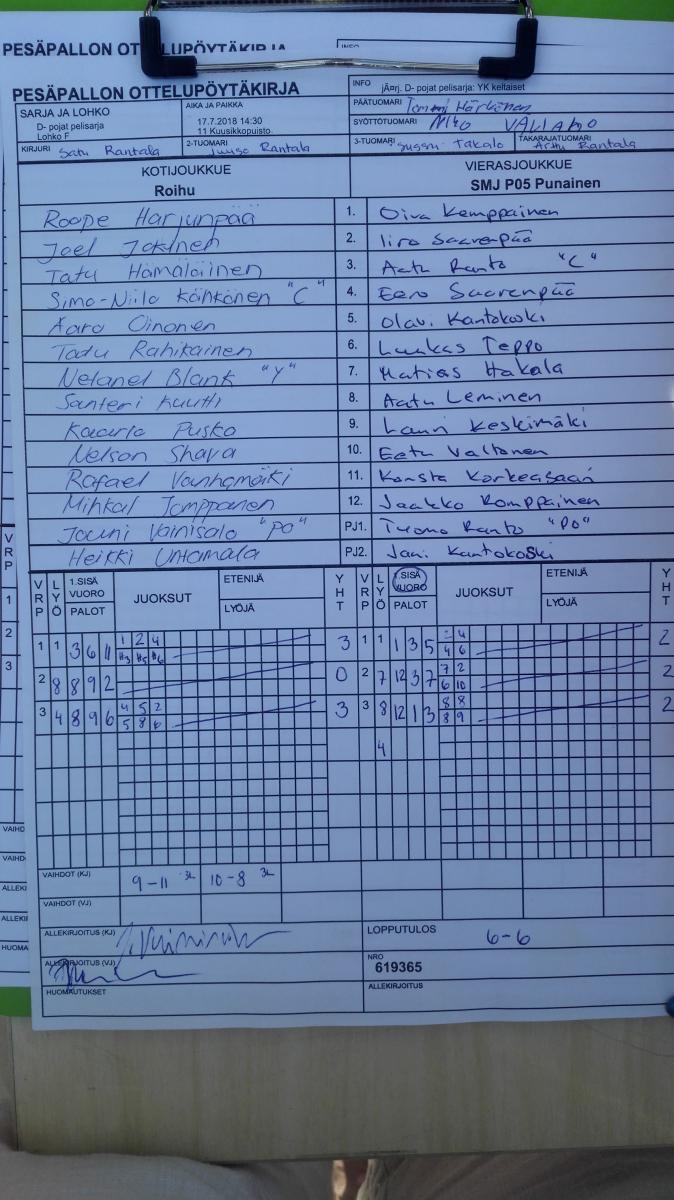 PESÄPALLON OTTELUPÖYTÄKIRJA
INFO
PESÄPALLON OTTELUPÖYTÄKIRJA
INFO jÄ¤rj. D- pojat pelisarja: YK keltaiset
SARJA JA LOHKO
D- pojat pelisarja
Lohko F
AIKA JA PAIKKA
17.7.2018 14:30
11 Kuusikkopuisto
PÄÄTUOMARI Tommi Härkönen
SYÖTTÖTUOMARI Niko
KIRJURI Satu Rantala
2-TUOMARI Juuso Rantala
3-TUOMARI Takalo
TAKARAJATUOMARI Arttu Rantala
KOTIJOUKKUE
Roihu
VIERASJOUKKUE
SMJ P05 Punainen
Roope Harjunpää 1. Oiva Kemppainen
Joel Jokinen 2. Iiro Saarenpää
Tatu Hämäläinen 3. Aatu Ranto "C"
Simo-Niilo Kähkönen "C" 4. Eero Saarenpää
Aaro Oinonen 5. Olavi Kantokoski
Tatu Rahikainen 6. Luukas Teppo
Netanel Blank "Y" 7. Matias Hakala
Santeri Kuutti 8. Aatu Leminen
Kaarlo Pusko 9. Lauri Keskimäki
Nelson Shava 10. Eetu Valtonen
Rafael Vanhamäki 11. Konsta Korkeasaari
Mihkal Jomppanen 12. Jaakko Romppainen
Jouni Vainisalo "PO" PJ1. Tuomo Ranto "PO"
Heikki Untamala PJ2. Jani Kantokoski
VRP LYÖ 1.SISÄ VUORO PALOT JUOKSUT ETENIJÄ LYÖJÄ YHT VRP LYÖ 1.SISÄ VUORO PALOT JUOKSUT ETENIJÄ LYÖJÄ YHT
1 1 3 6 11 1 2 4 3 1 1 1 3 5 - 4 2
#3 #5 #6 4 6
2 8 8 9 2 0 2 7 12 3 7 7 2 2
6 10
3 4 8 9 6 4 5 2 3 3 8 12 1 3 8 8 2
5 8 6 8 9
4
VAIHDOT (KJ) 9-11 3L 10-8 3L
VAIHDOT (VJ)
ALLEKIRJOITUS (KJ)
LOPPUTULOS 6-6
ALLEKIRJOITUS (VJ)
NRO
619365
HUOMAUTUKSET
ALLEKIRJOITUS
VRP
1
2
3
VAIHD
VAIHD
ALLEKI
ALLEKIR
HUOMA